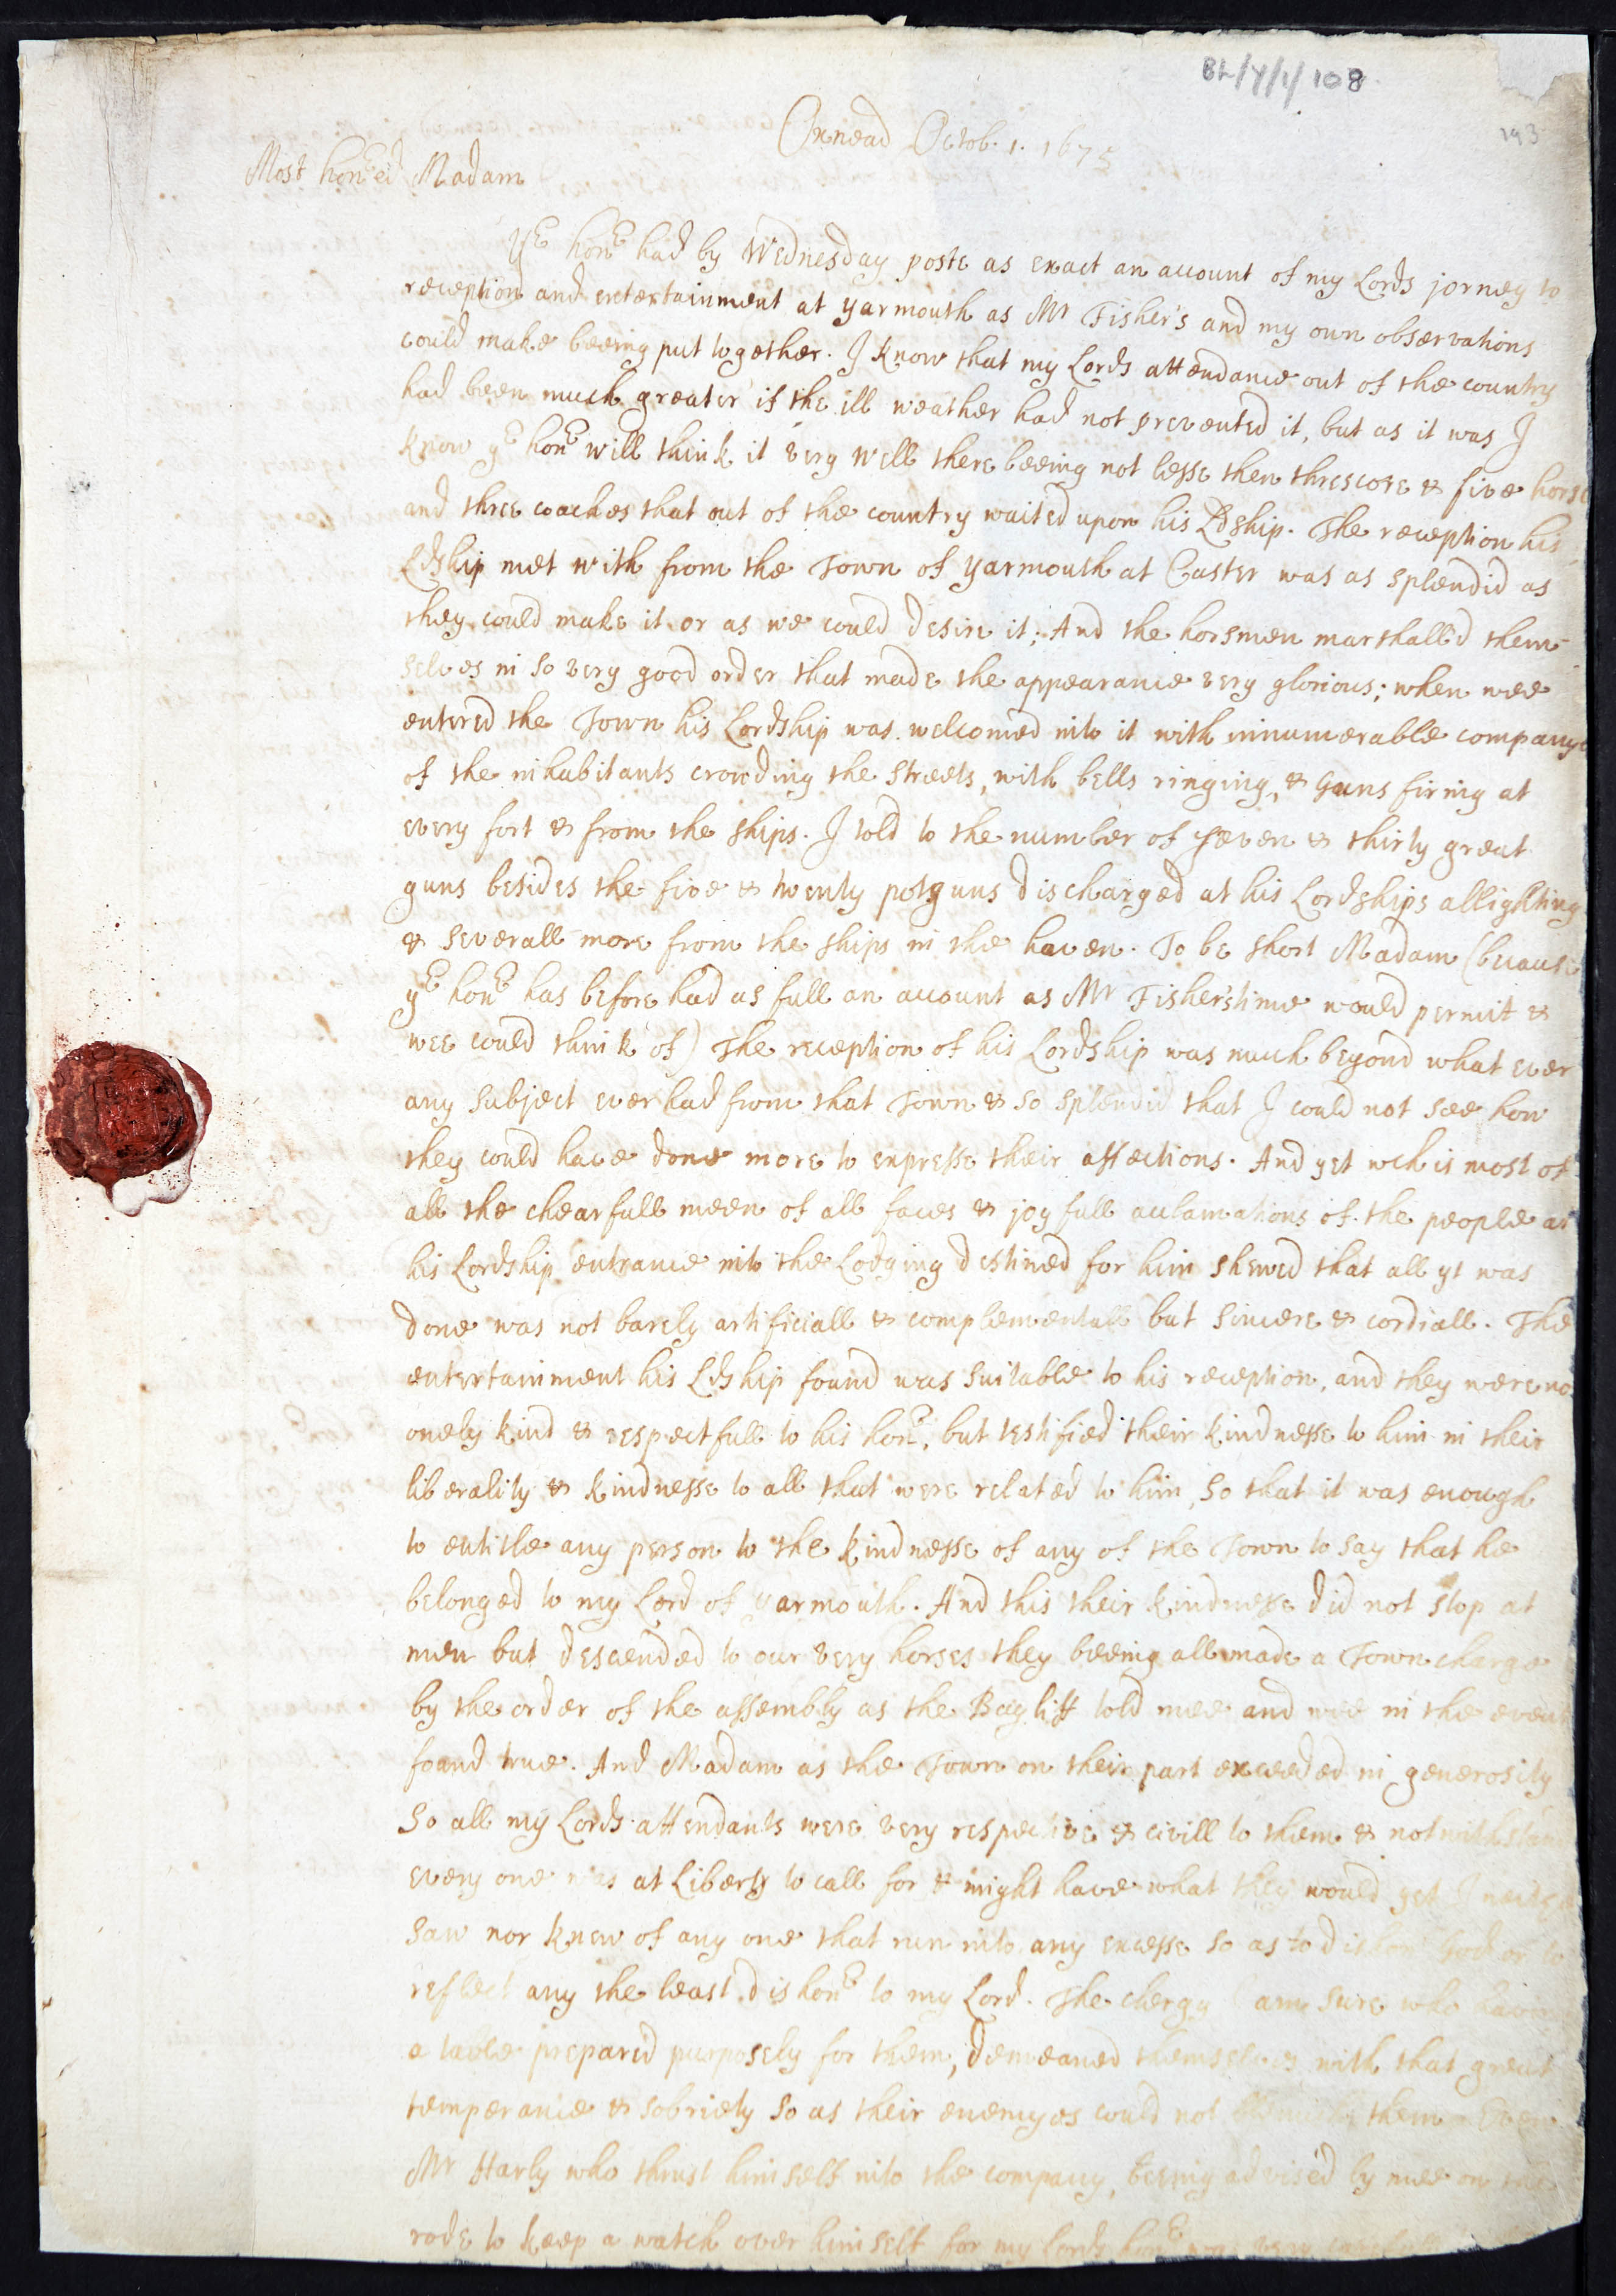 BL/Y/1/108
193
Oxnead Octob. 1. 1675
Most honred Madam
Yr honr had by Wednesday poste as exact an account of my Lords jorney to
reception and entertainment at Yarmouth as Mr Fisher's and my own observations
could make beeing put together. I know that my Lords attendance out of the country
had been much greater if the ill weather had not prevented it, but as it was I
know yr honr will think it very well there beeing not lesse then threscore & five horse
and three coaches that out of the country waited upon his Ldship. The reception his
Ldship met with from the Town of Yarmouth at Caster was as splendid as
they could make it or as we could desire it; And the horsmen marshall'd them-
selves in so very good order that made the appearance very glorious; when wee
entered the Town his Lordship was welcomed into it with innumerable companye
of the inhabitants crowding the streets, with bells ringing, & Guns firing at
every fort & from the ships. I told to the number of seven & thirty great
guns besides the five & twenty potguns discharged at his Lordships allighting
& severall more from the ships in the haven. To be short Madam (because
yr honr has before had as full an account as Mr Fisher's time would permit &
wee could think of) The reception of his Lordship was much beyond what ever
any subject ever had from that Town & so splendid that I could not see how
they could have done more to expresse their affections. And yet wch is most of
all the chearfull meen of all faces & joyfull acclamations of the people at
his Lordship entrance into the Lodging destined for him shewed that all yt was
done was not barely artificiall & complementall but sincere & cordiall. The
entertainment his Ldship found was suitable to his reception, and they were no
onely kind & respectfull to his honr, but testified their kindnesse to him in their
liberality & kindnesse to all that were related to him, so that it was enough
to entitle any person to the kindnesse of any of the Town to say that he
belonged to my Lord of Yarmouth. And this their kindnesse did not stop at
men but descended to our very horses they beeing all made a Town charge
by the order of the assembly as the Bayliff told mee and wee in the event
found true. And Madam as the Town on their part exceeded in generosity
So all my Lords attendants were very respective & civill to them & notwithstand
every one was at Liberty to call for & might have what they would yet I neither
saw nor knew of any one that run into any excesse so as to dishonr God or to
reflect any the least dishonr to my Lord. The clergy I am sure who have
a table prepared purposely for them, demeaned themselves with that great
temperance & sobriety so as their enemyes could not them Even
Mr Harly who thrust himself into the company, beeing advised by mee on the
rode to keep a watch over himself for my lords honr was very carefull